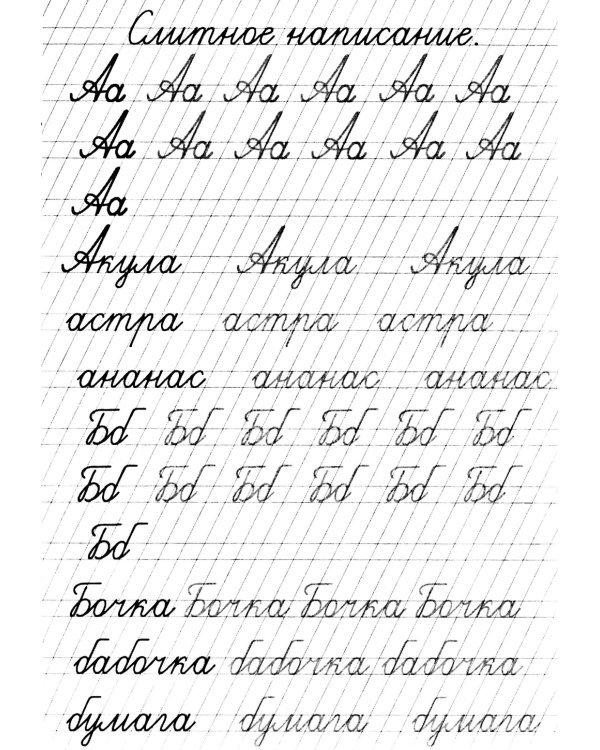 Слитное написание.
Аа Аа Аа Аа Аа Аа
Аа Аа Аа Аа Аа Аа
Аа
Акула Акула Акула
астра астра астра
ананас ананас ананас
Бб Бб Бб Бб Бб Бб
Бб Бб Бб Бб Бб Бб
Бб
Бочка Бочка Бочка Бочка
бабочка бабочка бабочка
бумага бумага бумага